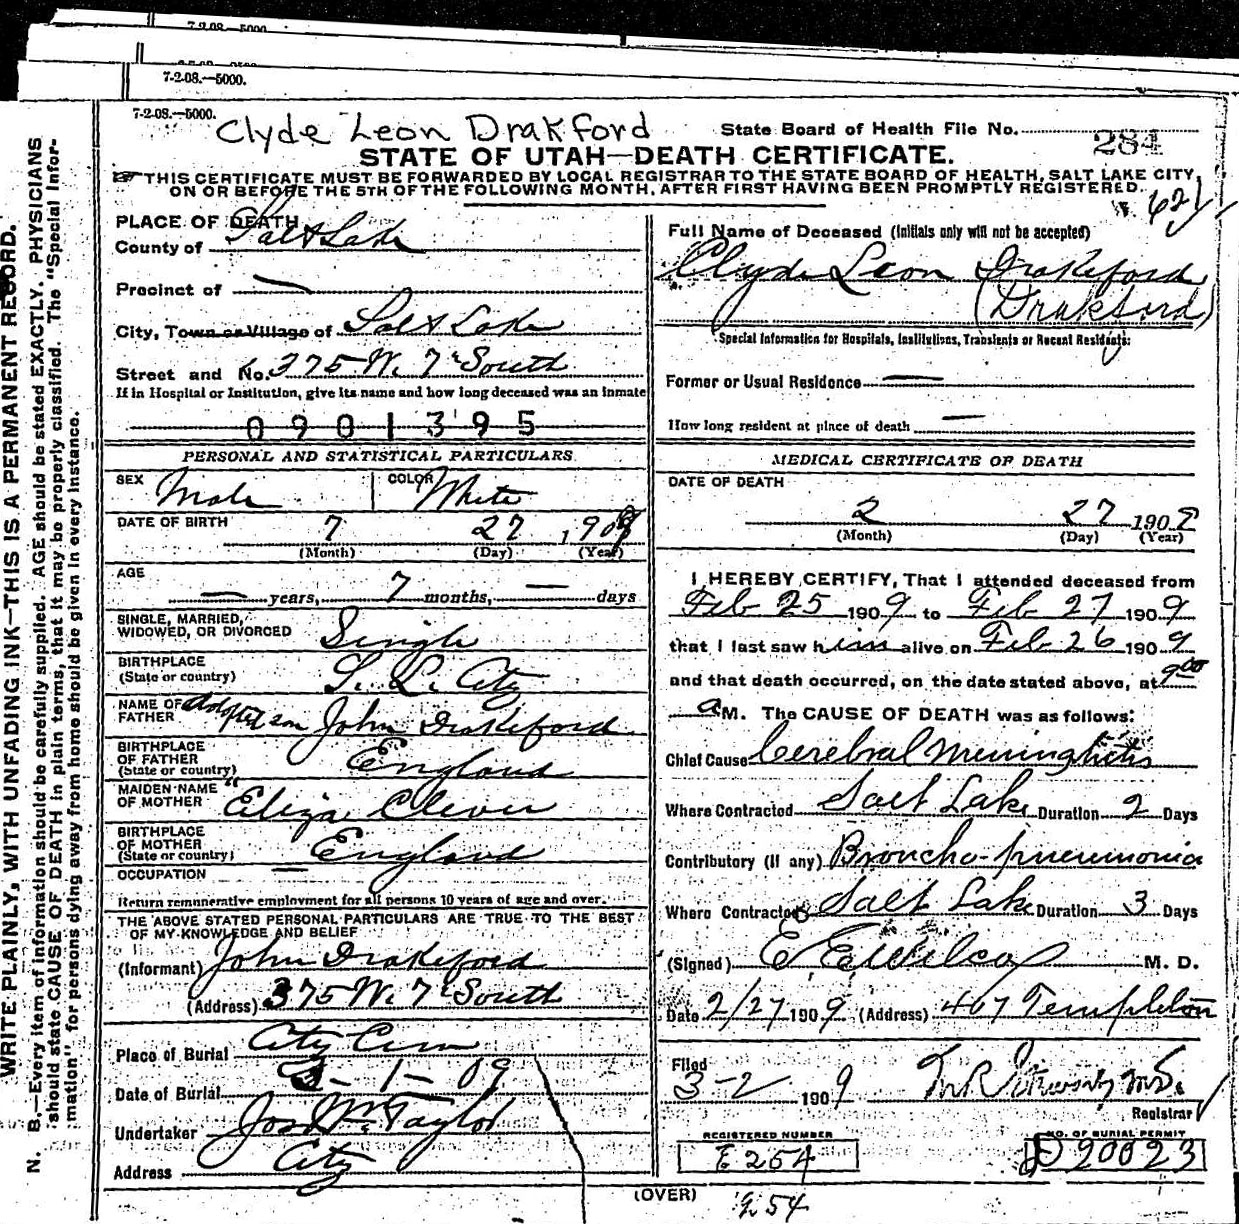 7-2-08.—5000.
7-2-08.—5000.
7-2-08.—5000.
Clyde Leon Drakford
State Board of Health File No. 284
STATE OF UTAH—DEATH CERTIFICATE.
THIS CERTIFICATE MUST BE FORWARDED BY LOCAL REGISTRAR TO THE STATE BOARD OF HEALTH, SALT LAKE CITY,
ON OR BEFORE THE 5TH OF THE FOLLOWING MONTH, AFTER FIRST HAVING BEEN PROMPTLY REGISTERED.
621
WRITE PLAINLY, WITH UNFADING INK—THIS IS A PERMANENT RECORD.
N. B.—Every item of information should be carefully supplied. AGE should be stated EXACTLY. PHYSICIANS
should state CAUSE OF DEATH in plain terms, that it may be properly classified. The "Special Infor-
mation" for persons dying away from home should be given in every instance.
PLACE OF DEATH
County of Salt Lake
Precinct of —
City, Town or Village of Salt Lake
Street and No. 375 W. 7th South
If in Hospital or Institution, give its name and how long deceased was an inmate
0901395
PERSONAL AND STATISTICAL PARTICULARS
SEX Male COLOR White
DATE OF BIRTH 7 27 1908
(Month) (Day) (Year)
AGE
— years, 7 months, — days
SINGLE, MARRIED,
WIDOWED, OR DIVORCED Single
BIRTHPLACE
(State or country) S. L. City
NAME OF
FATHER adopted son John Drakeford
BIRTHPLACE
OF FATHER
(State or country) England
MAIDEN NAME
OF MOTHER " Eliza Clever
BIRTHPLACE
OF MOTHER
(State or country) England
OCCUPATION —
Return remunerative employment for all persons 10 years of age and over.
THE ABOVE STATED PERSONAL PARTICULARS ARE TRUE TO THE BEST
OF MY KNOWLEDGE AND BELIEF
(Informant) John Drakeford
(Address) 375 W. 7th South
Place of Burial City Cem
Date of Burial 3-1-09
Undertaker Jos Wm Taylor
Address City
Full Name of Deceased (Initials only will not be accepted)
Clyde Leon Drakeford
(Drakford)
Special Information for Hospitals, Institutions, Transients or Recent Residents:
Former or Usual Residence —
How long resident at place of death —
MEDICAL CERTIFICATE OF DEATH
DATE OF DEATH
2 27 1909
(Month) (Day) (Year)
I HEREBY CERTIFY, That I attended deceased from
Feb 25 1909 to Feb 27 1909
that I last saw him alive on Feb 26 1909
and that death occurred, on the date stated above, at 9:00
a M. The CAUSE OF DEATH was as follows:
Chief Cause Cerebral Meninghitis
Where Contracted Salt Lake Duration 2 Days
Contributory (if any) Broncho-pneumonia
Where Contracted Salt Lake Duration 3 Days
(Signed) E E Wilcox M. D.
Date 2/27 1909 (Address) 407 Templeton
Filed
3-2 1909
Registrar
REGISTERED NUMBER
E254
NO. OF BURIAL PERMIT
D20023
(OVER)
954